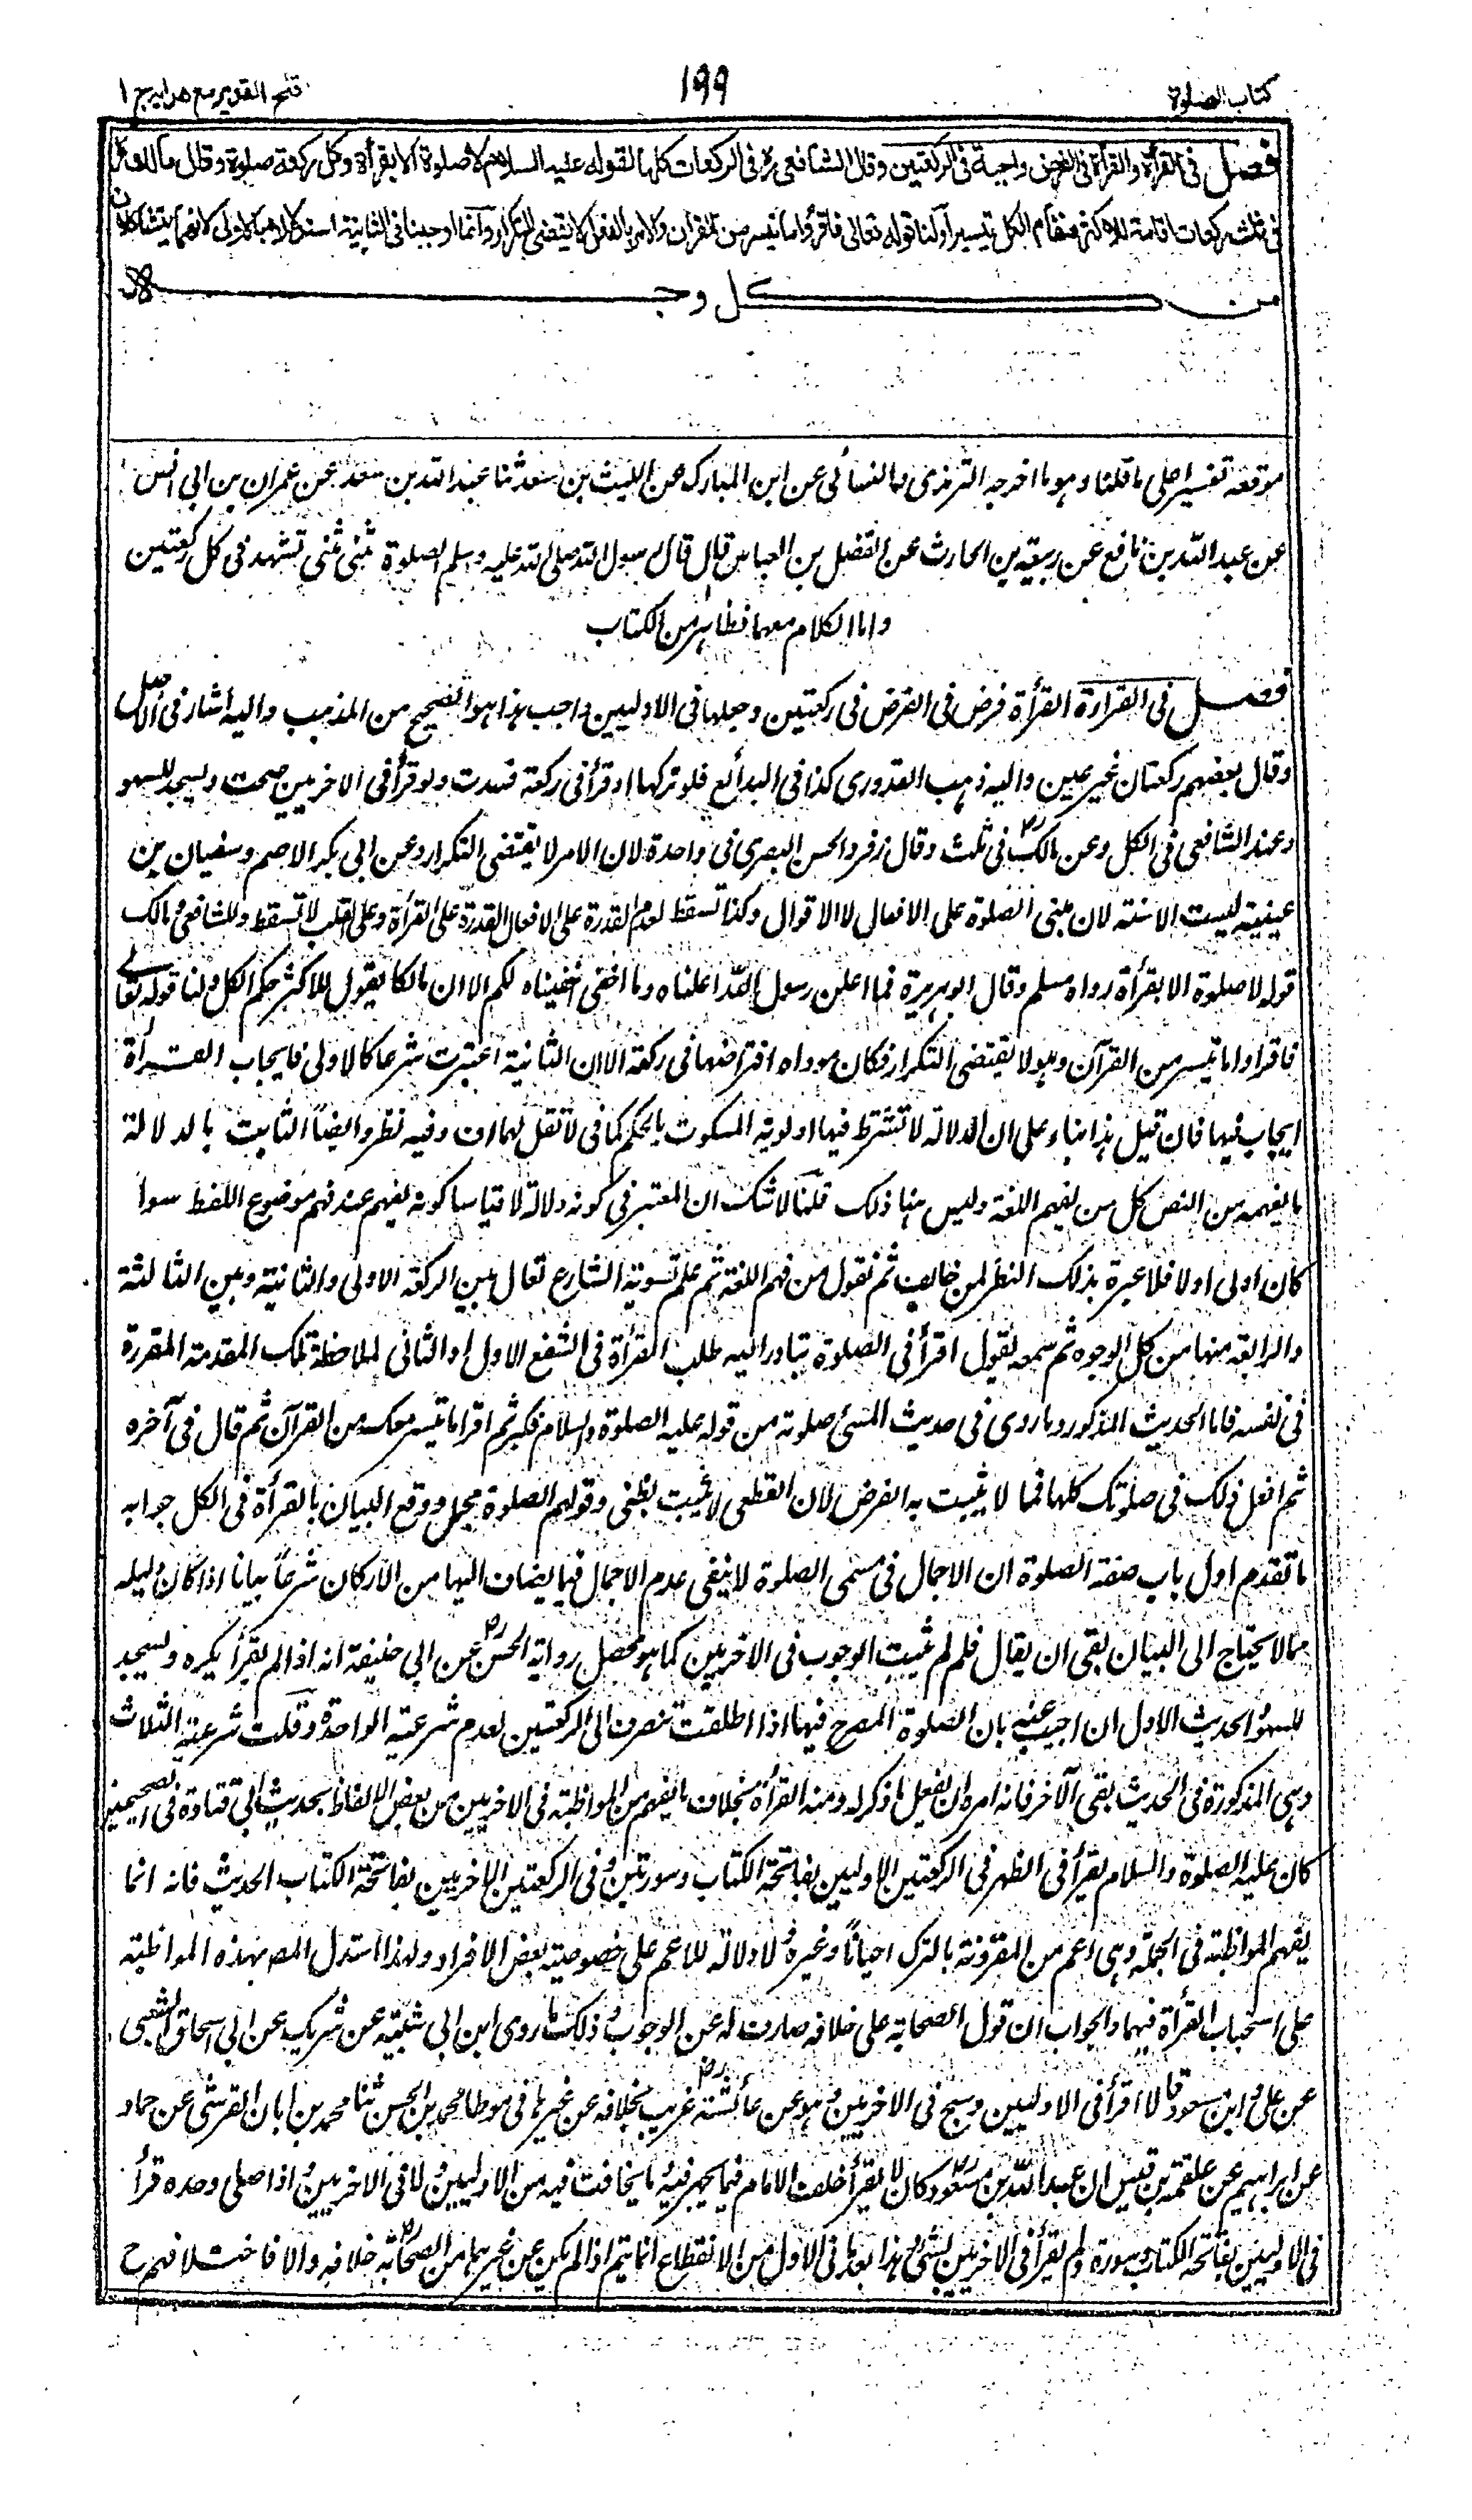 كتاب الصلوة
١٩٩
فتح القدير مع هدايه ج ١
فصل فى القرأة والقرأة فى الفرض واجبة فى الركعتين وقال الشافعى رح فى الركعات كلها لقوله عليه السلام لا صلوة الا بقرأة وكل ركعة صلوة وقال مالك
فى ثلث ركعات اقامة للاكثر مقام الكل تيسيرا ولنا قوله تعالى فاقرؤا ما تيسر من القرآن والامر بالفعل لا يقتضى التكرار وانما اوجبنا فى الثانية استدلالا بالاولى لانهما يتشاكلان
من كل وجه
موقعه تفسير اصلى ما قلنا وهو ما اخرجه الترمذى والنسائى عن ابن المبارك عن الليث بن سعد ثنا عبد الله بن سعد عن عمران بن ابى انس
عن عبد الله بن نافع عن ربيعة بن الحارث عن الفضل بن العباس قال قال رسول الله صلى الله عليه وسلم الصلوة مثنى مثنى تشهد فى كل ركعتين
واما الكلام معهما فظاهر من الكتاب
فصل فى القراءة القرأة فرض فى الفرض فى ركعتين وجعلها فى الاوليين واجب هذا هو الصحيح من المذهب واليه اشار فى الاصل
وقال بعضهم ركعتان غير عين واليه ذهب القدورى كذا فى البدائع فلو تركها او قرأ فى ركعة فسدت ولو قرأ فى الاخريين صحت ويسجد للسهو
وعند الشافعى فى الكل وعن مالك رح فى ثلث وقال زفر والحسن البصرى فى واحدة لان الامر لا يقتضى التكرار وعن ابى بكر الاصم وسفيان بن
عيينة ليست الا سنة لان مبنى الصلوة على الافعال لا الاقوال وكذا تسقط لعدم القدرة على الافعال القدرة على القرأة وعلى القلب لا تسقط وللشافعى ومالك
قوله لا صلوة الا بقرأة رواه مسلم وقال ابوهريرة فما اعلن رسول الله اعلناه وما اخفى اخفيناه لكم الا ان مالكا يقول للاكثر حكم الكل ولنا قوله تعالى
فاقرءوا ما تيسر من القرآن وهو لا يقتضى التكرار فكان موداه افتراضها فى ركعة الا ان الثانية اعتبرت شرعا كالاولى فايجاب القرأة
ايجاب فيها فان قيل هذا بناء على ان الدلالة لا تشترط فيها اولوية المسكوت بالحكم كما فى لا تقل لهما اف وفيه نظر وايضاً الثابت بالدلالة
ما يفهمه من النص كل من يفهم اللغة وليس هنا ذلك قلنا لا شك ان المعتبر فى كونه دلالة لا قياسا كونه يفهم عند فهم موضوع اللفظ سواء
كان اولى اولا فلا عبرة بذلك النظر لمن خالف ثم نقول من فهم اللغة ثم علم تسوية الشارع تعال بين الركعة الاولى والثانية وبين الثالثة
والرابعة منها من كل الوجوه ثم سمعه يقول اقرأ فى الصلوة تبادر اليه طلب القرأة فى الشفع الاول او الثانى لملاحظة تلك المقدمة المقررة
فى نفسه فاما الحديث المذكور وما روى فى حديث المسئ صلوته من قوله عليه الصلوة والسلام فكبر ثم اقرا ما تيسر معك من القرآن ثم قال فى آخره
ثم افعل ذلك فى صلوتك كلها فما لا يثبت به الفرض لان القطعى لا يثبت بظنى وقولهم الصلوة مجمل ووقع البيان بالقرأة فى الكل جوابه
ما تقدم اول باب صفة الصلوة ان الاجمال فى مسمى الصلوة لا ينفى عدم الاجمال فيما يضاف اليها من الاركان شرعاً بيانا اذا كان دليله
مما لا يحتاج الى البيان بقى ان يقال فلم لم يثبت الوجوب فى الاخريين كما هو محصل رواية الحسن رح عن ابى حنيفة انه اذا لم يقرأ يكره ويسجد
للسهو والحديث الاول ان اجيب عنه بان الصلوة المصرح فيها اذا اطلقت تنصرف الى الركعتين لعدم شرعية الواحدة وقلت شرعية الثلاث
وهى المذكورة فى الحديث بقى الآخر فانه امره ان يفعل ما ذكر له ومنه القرأة بخلاف ما يفهم من المواظبة فى الاخريين من بعض الالفاظ بحديث ابى قتادة فى الصحيحين
كان عليه الصلوة والسلام يقرأ فى الظهر فى الركعتين الاوليين بفاتحة الكتاب وسورتين وفى الركعتين الاخريين بفاتحة الكتاب الحديث فانه انما
يفهم المواظبة فى الجملة وهى اعم من المقرونة بالترك احياناً وغيره ولا دلالة للاعم على خصوصية بعض الافراد ولهذا استدل المصـ بهذه المواظبة
على استحباب القرأة فيهما والجواب ان قول الصحابة على خلافه صارف له عن الوجوب وذلك ما روى ابن ابى شيبة عن شريك عن ابى اسحاق الشعبى
عن على وابن مسعود قالا اقرأ فى الاوليين وسبح فى الاخريين وهو عن عائشة رض غريب بخلافه عن غيرها فى موطا محمد بن الحسن ثنا محمد بن ابان القرشى عن حماد
عن ابراهيم عن علقمة بن قيس ان عبد الله بن مسعود رض كان لا يقرأ خلف الامام فيما يجهر فيه وما يخافت فيه من الاوليين ولا فى الاخريين واذا صلى وحده قرأ
فى الاوليين بفاتحة الكتاب وسورة ولم يقرأ فى الاخريين بشئ وهذا بعد ما فى الاول من الانقطاع انما يتم اذا لم يكن عن غيرهما من الصحابة رض خلافه والا فاختلافهم ح